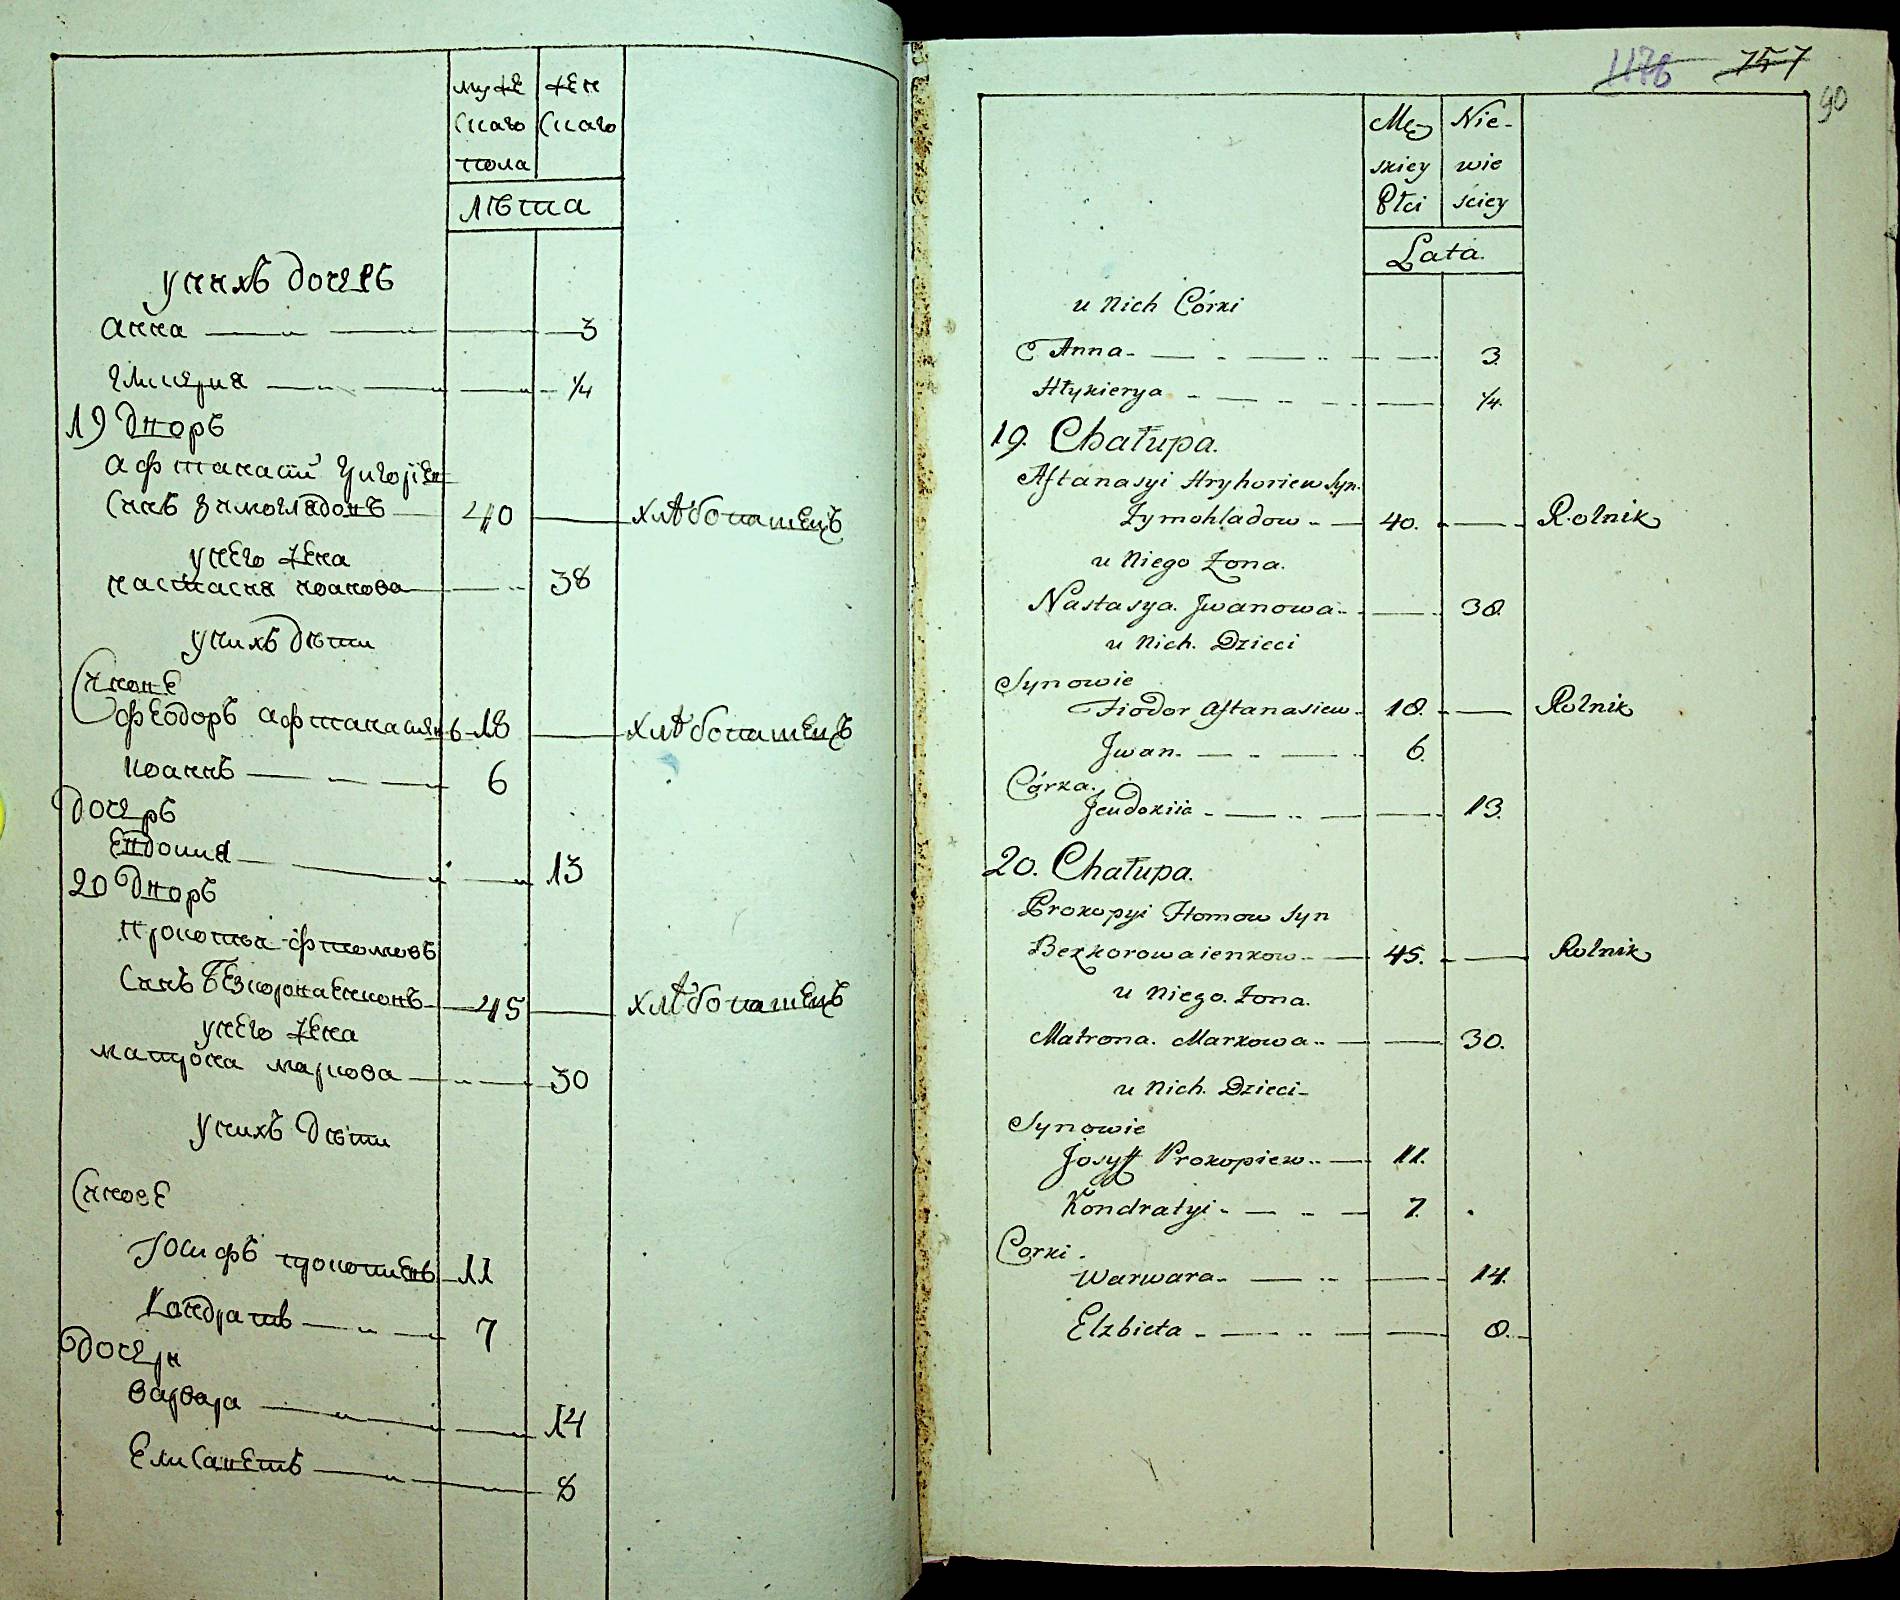 муже
скаго
пола
жен
скаго
лѣта
у нихъ дочерѣ
анна 3
гликерия 1/4
19 дворъ
афтанасий григориев
синъ зимогладовъ 40 хлѣбопашецъ
у него жена
настасия иоанова 38
у нихъ дѣти
синове
феодоръ афтанасиевъ 18 хлѣбопашецъ
иоаннъ 6
дочеръ
евдокия 13
20 дворъ
прокопии фтомовъ
синъ безкороваенковъ 45 хлѣбопашецъ
у него жена
матрона маркова 30
у нихъ дѣти
синове
Іосифъ прокопиевъ 11
Кондратъ 7
дочери
варвара 14
елисаветъ 8
1176 757
90
Mę-
skiey
Płci
Nie-
wie
ściey
Lata.
u Nich Córki
Anna 3.
Hłykierya 1/4.
19. Chałupa.
Aftanasyi Hryhoriew Syn.
Zymohladow 40. Rolnik
u Niego Żona.
Nastasya. Jwanowa 38.
u Nich. Dzieci
Synowie
Fiodor Aftanasiew 18. Rolnik
Jwan. 6.
Córka.
Jeudokiia 13.
20. Chałupa.
Prokopyi Ftomow Syn
Bezkorowaienkow 45. Rolnik
u Niego. Żona.
Matrona. Markowa 30.
u Nich. Dzieci
Synowie
Josyff Prokopiew 11.
Kondratyi 7.
Corki.
Warwara 14.
Elzbieta 8.